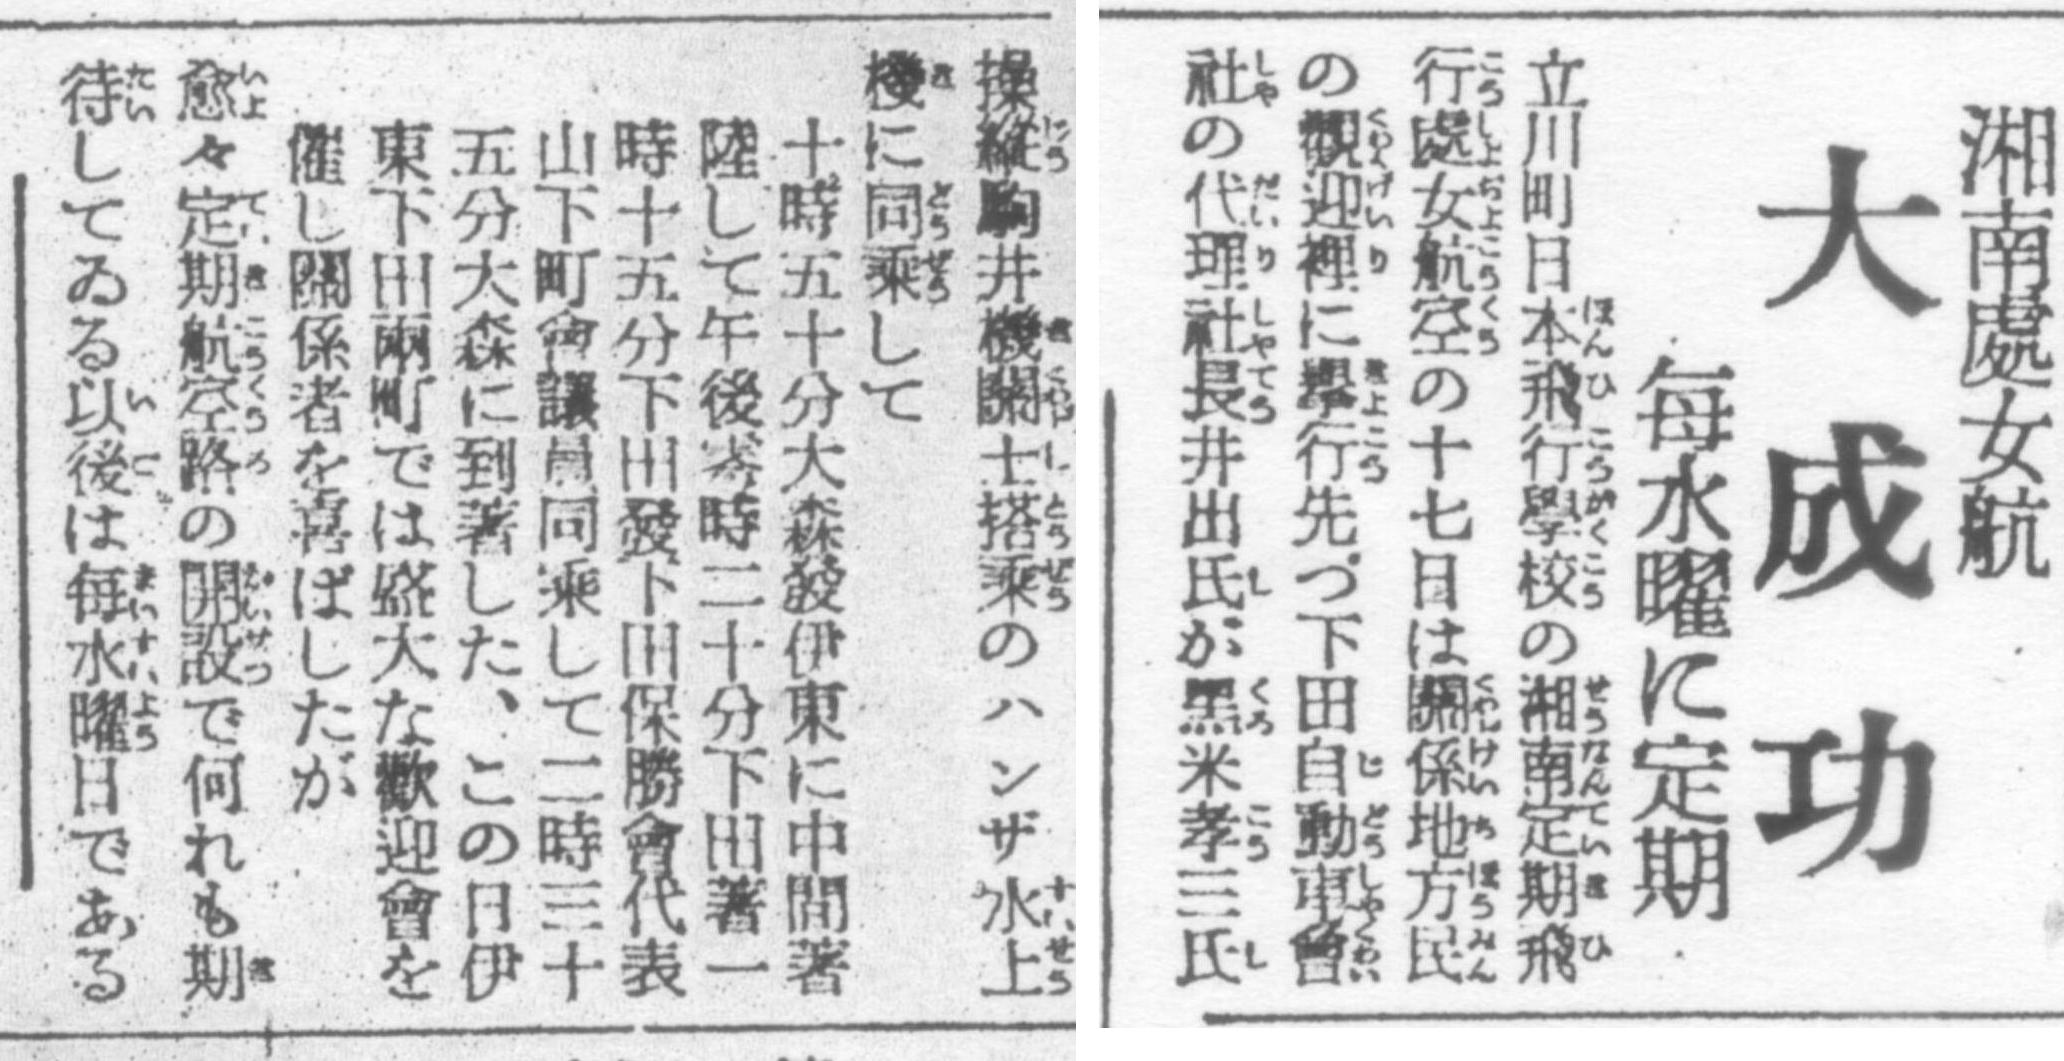 湘南處女航
大成功
毎水曜に定期
立川町日本飛行學校の湘南定期飛
行處女航空の十七日は關係地方民
の觀迎裡に擧行先づ下田自動車會
社の代理社長井出氏が黑米孝三氏
操縱駒井機關士搭乘のハンザ水上
機に同乘して
十時五十分大森發伊東に中間著
陸して午後零時二十分下田著一
時十五分下田發下田保勝會代表
山下町會議員同乘して二時三十
五分大森に到著した、この日伊
東下田兩町では盛大な歡迎會を
催し關係者を喜ばしたが
愈々定期航空路の開設で何れも期
待してゐる以後は毎水曜日である